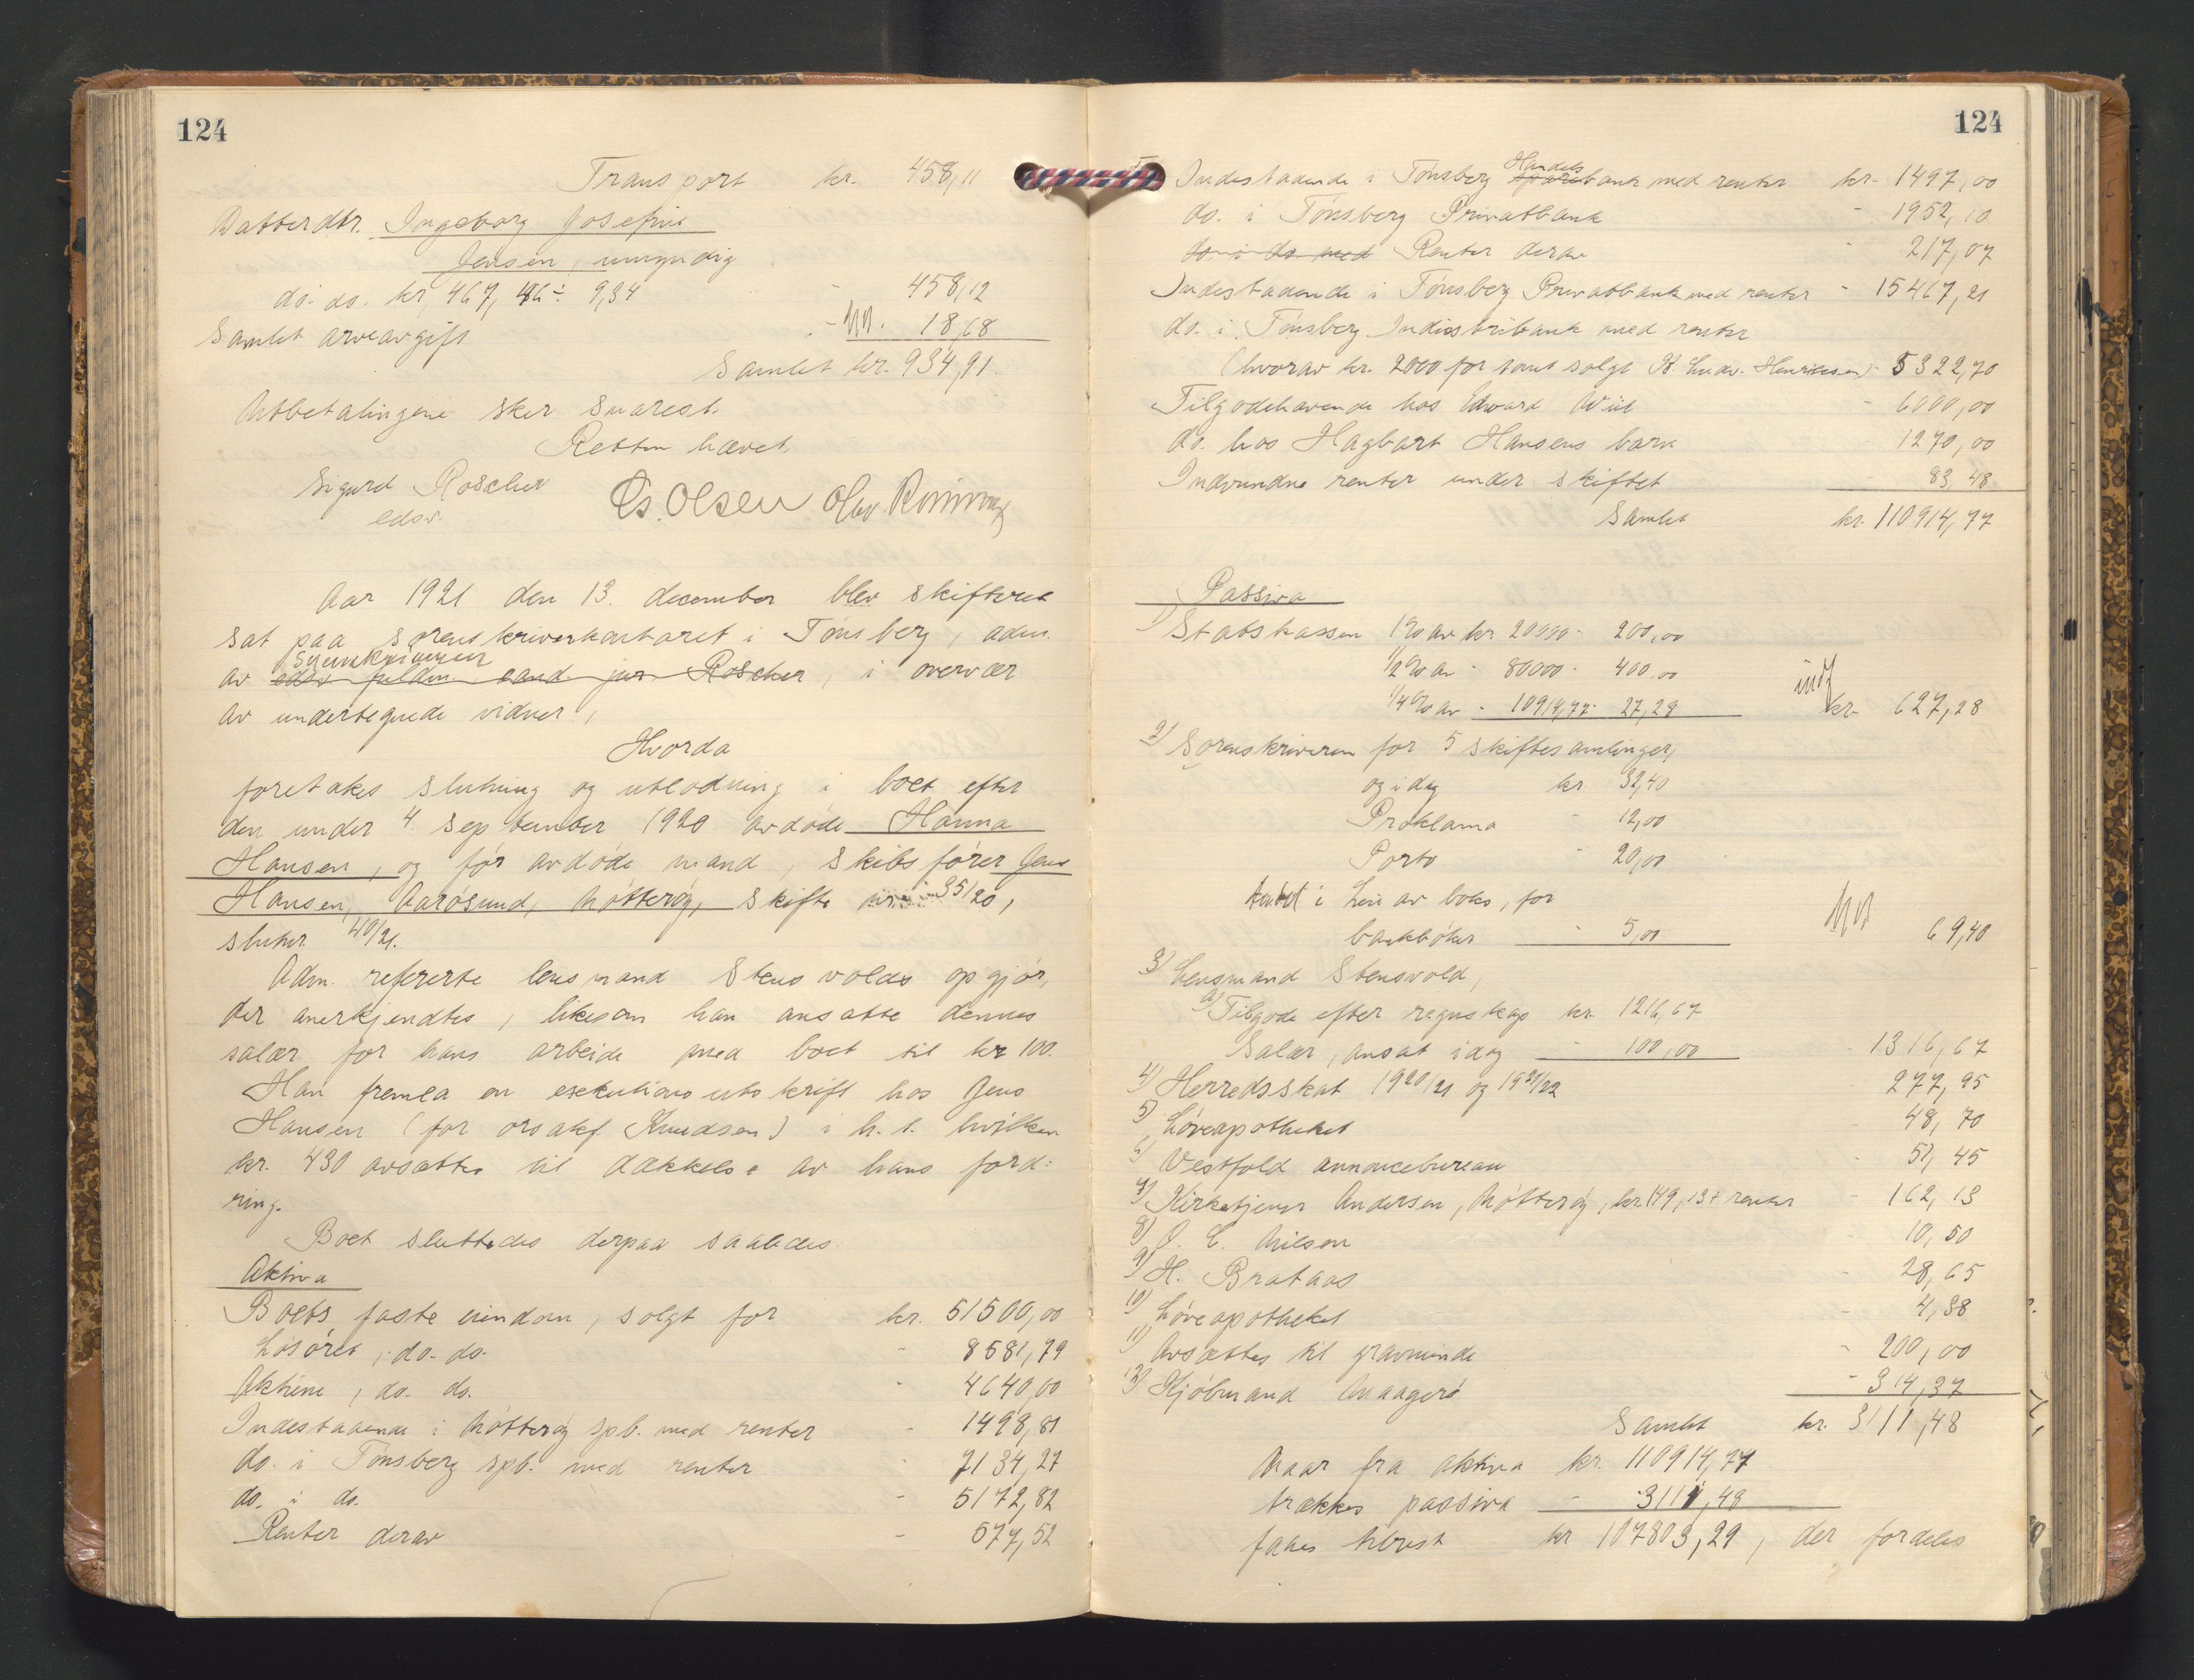 124
Transport kr. 458,11
Datterdtr. Ingeborg Josefine
Jensen, umyndig
do. do. kr. 467,46 ÷ 9,34 - 458,12
Samlet arveavgift - 18,68
Samlet kr. 934,91.
Utbetalingene sker snarest.
Retten hævet.
Sigurd Roscher
edsv.
Cs. Olsen Olav
Aar 1921 den 13. december blev skifteret
sat paa sorenskriverkontoret i Tønsberg, adm.
sorenskriveren
av edsv. fuldm. cand. jur. Roscher, i overvær
av undertegnede vidner,
Hvorda
foretakes slutning og utlodning i boet efter
den under 4. september 1920 avdøde Hanna
Hansen, og før avdøde mand, skibsfører Jens
Hansen, Aarøsund, Nøtterøy, skifte nr. 35/20,
slutn. 40/21.
Adm. refererte lensmand Stensvolds opgjør,
der anerkjendtes, likesom han ansatte dennes
salær for hans arbeide med boet til kr 100.
Han fremla en exekutionsutskrift hos Jens
Hansen (for orsakf. Knudsen) i h. t. hvilken
kr. 430 avsættes til dækkelse av hans ford-
ring.
Boet sluttedes derpaa saaledes.
Aktiva
Boets faste eiendom, solgt for kr. 51500,00
Løsøret, do. do. - 8581,79
Aktiene, do. do. - 4640,00
Indestaaende i Nøtterøy spb. med renter - 1498,81
do. i Tønsberg spb. med renter - 7134,27
do. i do. - 5172,82
Renter derav - 577,52
124
Handels
Indestaaende i Tønsberg sparebank med renter kr. 1497,00
do. i Tønsberg Privatbank - 1952,10
do i do med Renter derav - 217,07
Indestaaende i Tønsberg Privatbank med renter - 15467,21
do. i Tønsberg Industribank med renter
(hvorav kr. 2000 for tomt solgt K. Ludv. Henriksen) - 5322,70
Tilgodehavende hos Edward Wiil - 6000,00
do. hos Hagbart Hansens barn 1270,00
Indvundne renter under skiftet - 83,48
Samlet kr. 110914,77
Passiva
1) Statskassen 1% av kr 20000 - 200,00
1/2 % av - 80000 - 400,00
1/4 % av - 10914,77 - 27,28 kr. 627,28
2) Sorenskriveren for 5 skiftesamlinger,
og idag kr 32,40
Proklama - 12,00
Porto - 20,00
Andel i Leie av boks, for
bankbøker - 5,00 69,40
3) Lensmand Stensvold,
a) Tilgode efter regnskap kr. 1216,67
Salær, ansat idag - 100,00 - 1316,67
4) Herredsskat 1920/21 og 1921/22 - 277,95
5) Løveapotheket - 48,70
6) Vestfold annoncebureau - 51,45
7) Kirketjener Andersen, Nøtterøy, kr. 149,13 + renter - 162,13
8) O. C. Nilsen - 10,50
9) H. Brataas - 28,65
10) Løveapotheket - 4,38
11) Avsættes til gravminde - 200,00
12) Kjøbmand Maagerø - 314,37
Samlet kr. 3111,48
Naar fra aktiva kr. 110914,77
trækkes passiva - 3111,48
faaes tilrest kr 107803,29, der fordeles